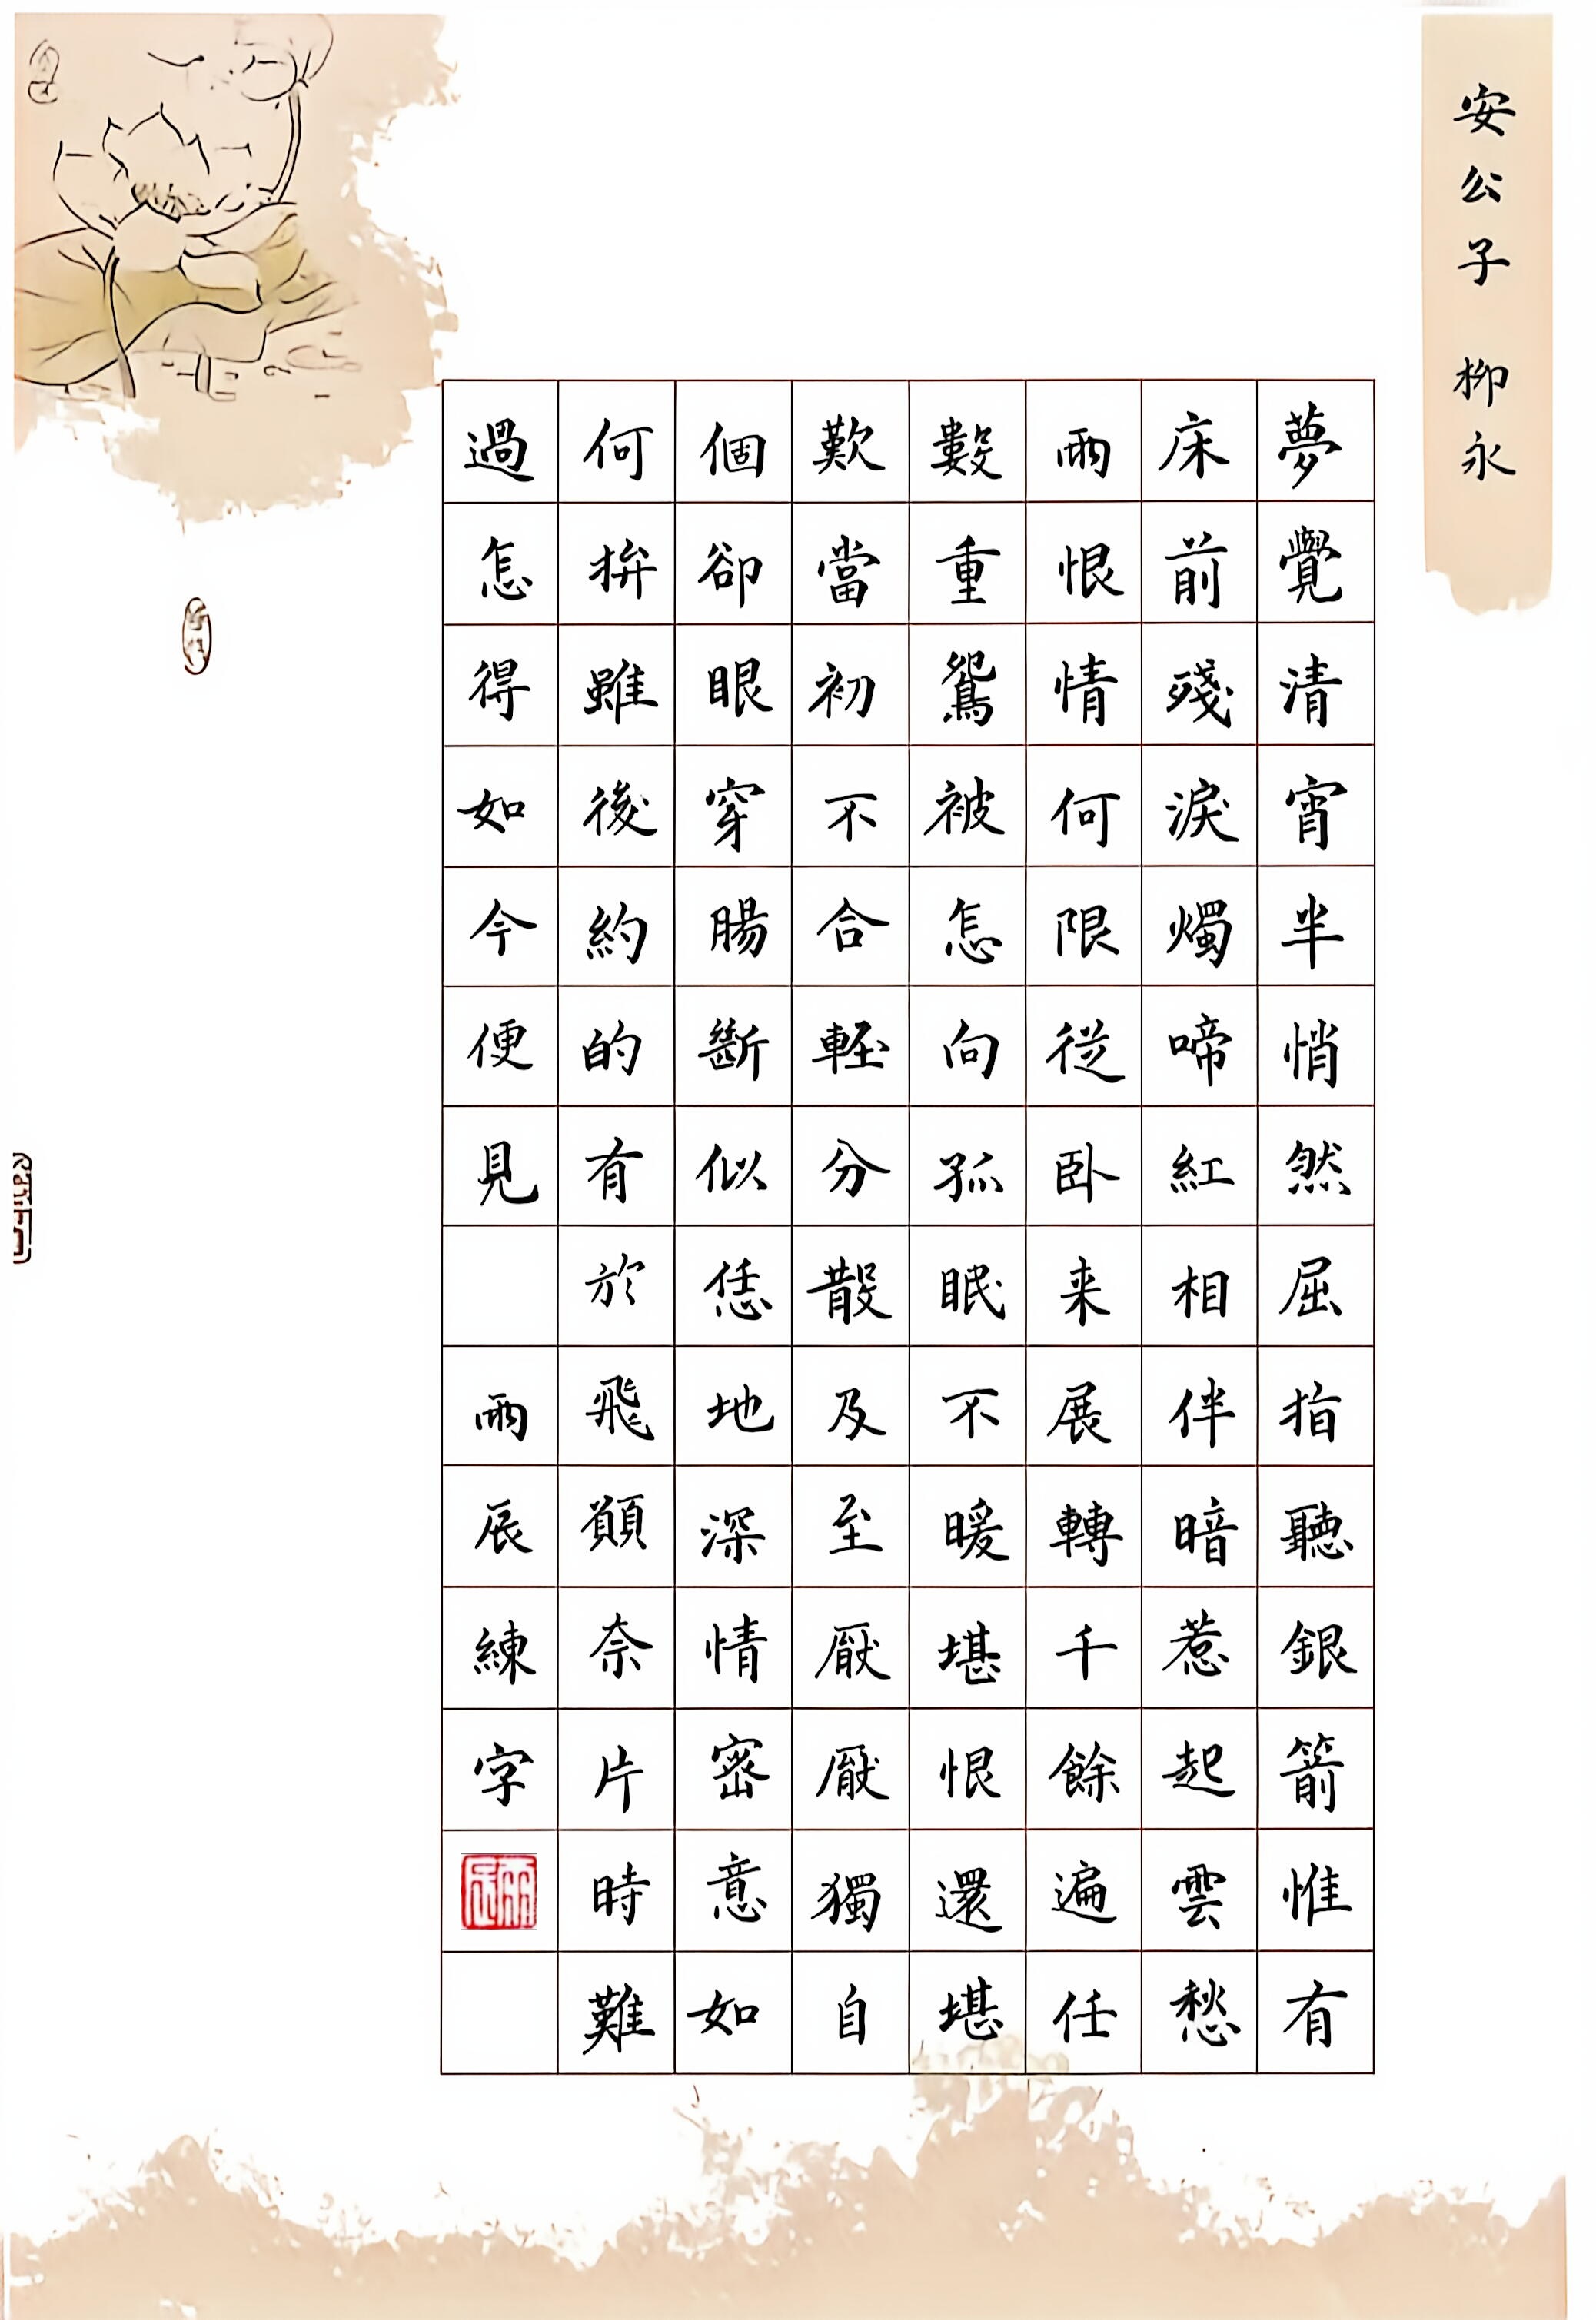 安公子 柳永
夢覺清宵半悄然屈指聽銀箭惟有
床前殘淚燭啼紅相伴暗惹起雲愁
雨恨情何限從卧来展轉千餘遍任
數重鴛被怎向孤眠不暖堪恨還堪
歎當初不合輕分散及至厭厭獨自
個卻眼穿腸斷似恁地深情密意如
何拚雖後約的有於飛願奈片時難
過怎得如今便見 雨辰練字
雨辰